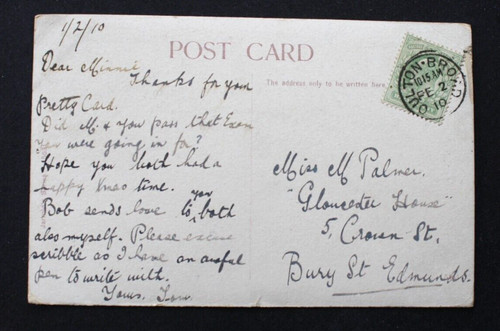 1/2/10
POST CARD
The address only to be written here.
Dear Minnie
Thanks for your
Pretty Card.
Did M. & you pass that Exam
you were going in for?
Hope you both had a
happy Xmas time.
Bob sends love to you both
also myself. Please excuse
scribble as I have an awful
pen to write with.
Yours, Tom.
OULTON·BROAD
10 15 AM
FE 2
10
Miss M Palmer.
"Gloucester House"
5, Crown St.
Bury St Edmunds.